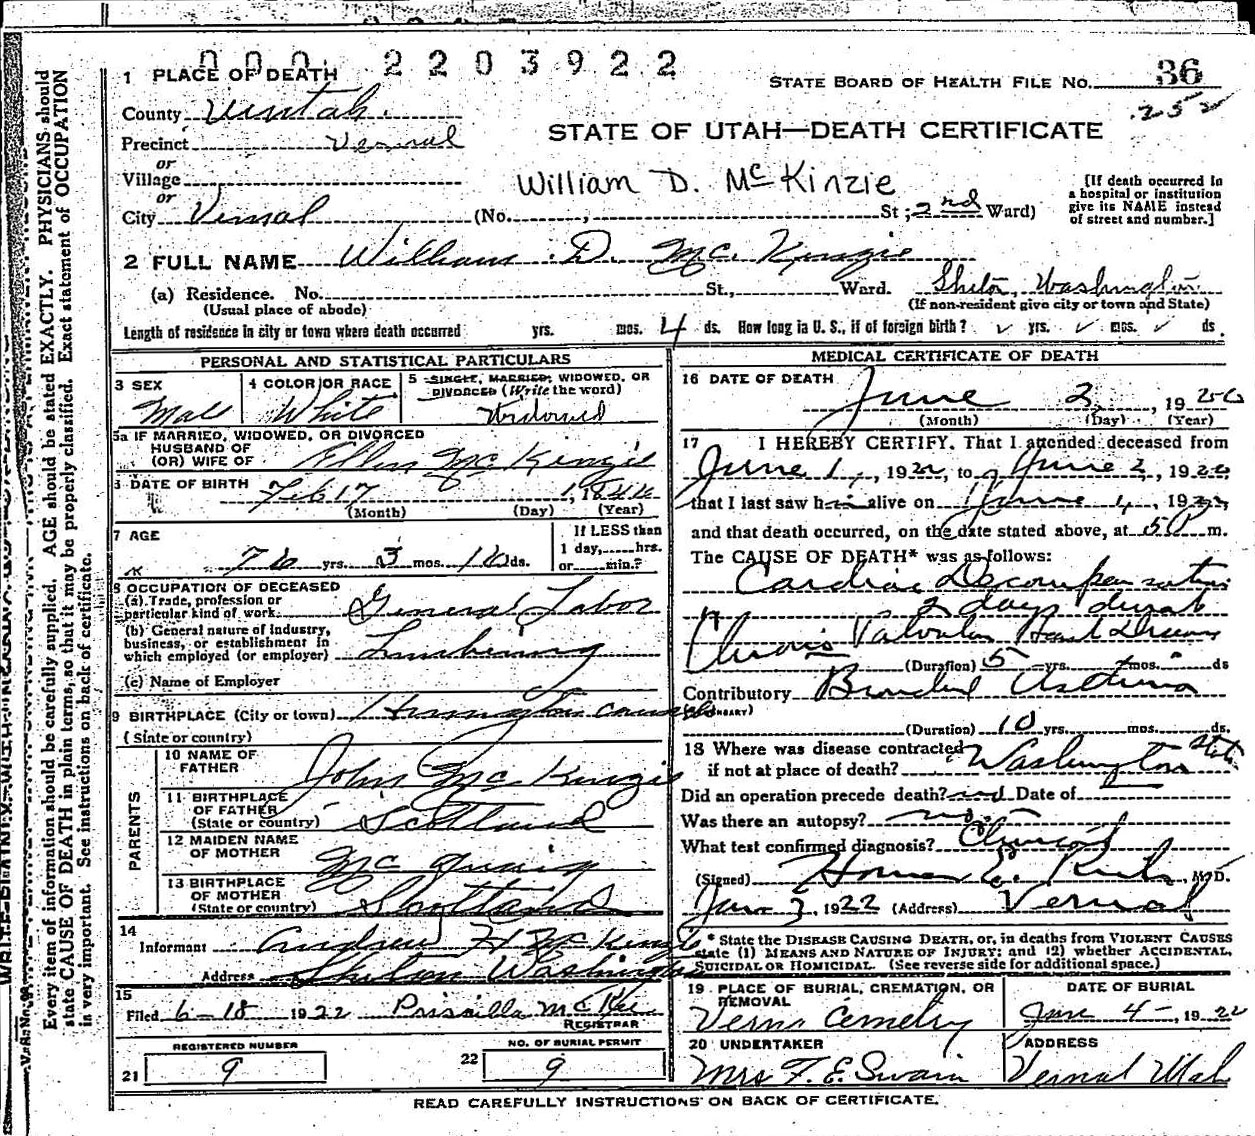 000 2203922
1 PLACE OF DEATH
STATE BOARD OF HEALTH FILE No. 36
252
County Uintah.
STATE OF UTAH—DEATH CERTIFICATE
Precinct Vernal
or
Village
William D. McKinzie
[If death occurred in a hospital or institution give its NAME instead of street and number.]
or
City Vernal (No. , St ; 2nd Ward)
2 FULL NAME William D. Mc. Kinzie
(a) Residence. No. St., Ward. Shelton, Washington
(Usual place of abode) (If non-resident give city or town and State)
Length of residence in city or town where death occurred yrs. mos. 4 ds. How long in U. S., if of foreign birth? ✓ yrs. ✓ mos. ✓ ds.
PERSONAL AND STATISTICAL PARTICULARS
3 SEX
Male
4 COLOR OR RACE
White
5 SINGLE, MARRIED, WIDOWED, OR
DIVORCED (Write the word)
Widowed
5a IF MARRIED, WIDOWED, OR DIVORCED
HUSBAND OF
(OR) WIFE OF Ellen McKinzie
6 DATE OF BIRTH Feb 17 , 1846
(Month) (Day) (Year)
7 AGE
76 yrs. 3 mos. 16 ds.
If LESS than
1 day, hrs.
or min.?
8 OCCUPATION OF DECEASED
(a) Trade, profession or
particular kind of work General Labor
(b) General nature of industry,
business, or establishment in
which employed (or employer) Lumbering
(c) Name of Employer
9 BIRTHPLACE (City or town)
(State or country)
PARENTS
10 NAME OF
FATHER John McKinzie
11 BIRTHPLACE
OF FATHER
(State or country) Scotland
12 MAIDEN NAME
OF MOTHER Mc
13 BIRTHPLACE
OF MOTHER
(State or country) Scotland
14
Informant Andrew H McKinzie
Address Shelton Washington
15
Filed 6-18 1922 Priscilla McKee
REGISTRAR
REGISTERED NUMBER
21 9
NO. OF BURIAL PERMIT
22 9
MEDICAL CERTIFICATE OF DEATH
16 DATE OF DEATH
June 2, 1922
(Month) (Day) (Year)
17 I HEREBY CERTIFY, That I attended deceased from
June 1, 1922, to June 2, 1922
that I last saw him alive on June 1, 1922,
and that death occurred, on the date stated above, at 5 P m.
The CAUSE OF DEATH* was as follows:
Cardiac Decompensation
2 days durat
Chronic Valvular Heart Disease
(Duration) 5 yrs. mos. ds
Contributory Bronchial Asthma
(SECONDARY)
(Duration) 10 yrs. mos. ds.
18 Where was disease contracted
if not at place of death? Washington State
Did an operation precede death? no Date of
Was there an autopsy? no
What test confirmed diagnosis? Clinical
(Signed) Homer E. , M.D.
June 3, 1922 (Address) Vernal
* State the DISEASE CAUSING DEATH, or, in deaths from VIOLENT CAUSES
state (1) MEANS AND NATURE OF INJURY; and (2) whether ACCIDENTAL,
SUICIDAL OR HOMICIDAL. (See reverse side for additional space.)
19 PLACE OF BURIAL, CREMATION, OR
REMOVAL
Vernal Cemetry
DATE OF BURIAL
June 4-, 1922
20 UNDERTAKER
Mrs F. E. Swain
ADDRESS
Vernal Utah
READ CAREFULLY INSTRUCTIONS ON BACK OF CERTIFICATE.
Every item of information should be carefully supplied. AGE should be stated EXACTLY. PHYSICIANS should
state CAUSE OF DEATH in plain terms, so that it may be properly classified. Exact statement of OCCUPATION
is very important. See instructions on back of certificate.